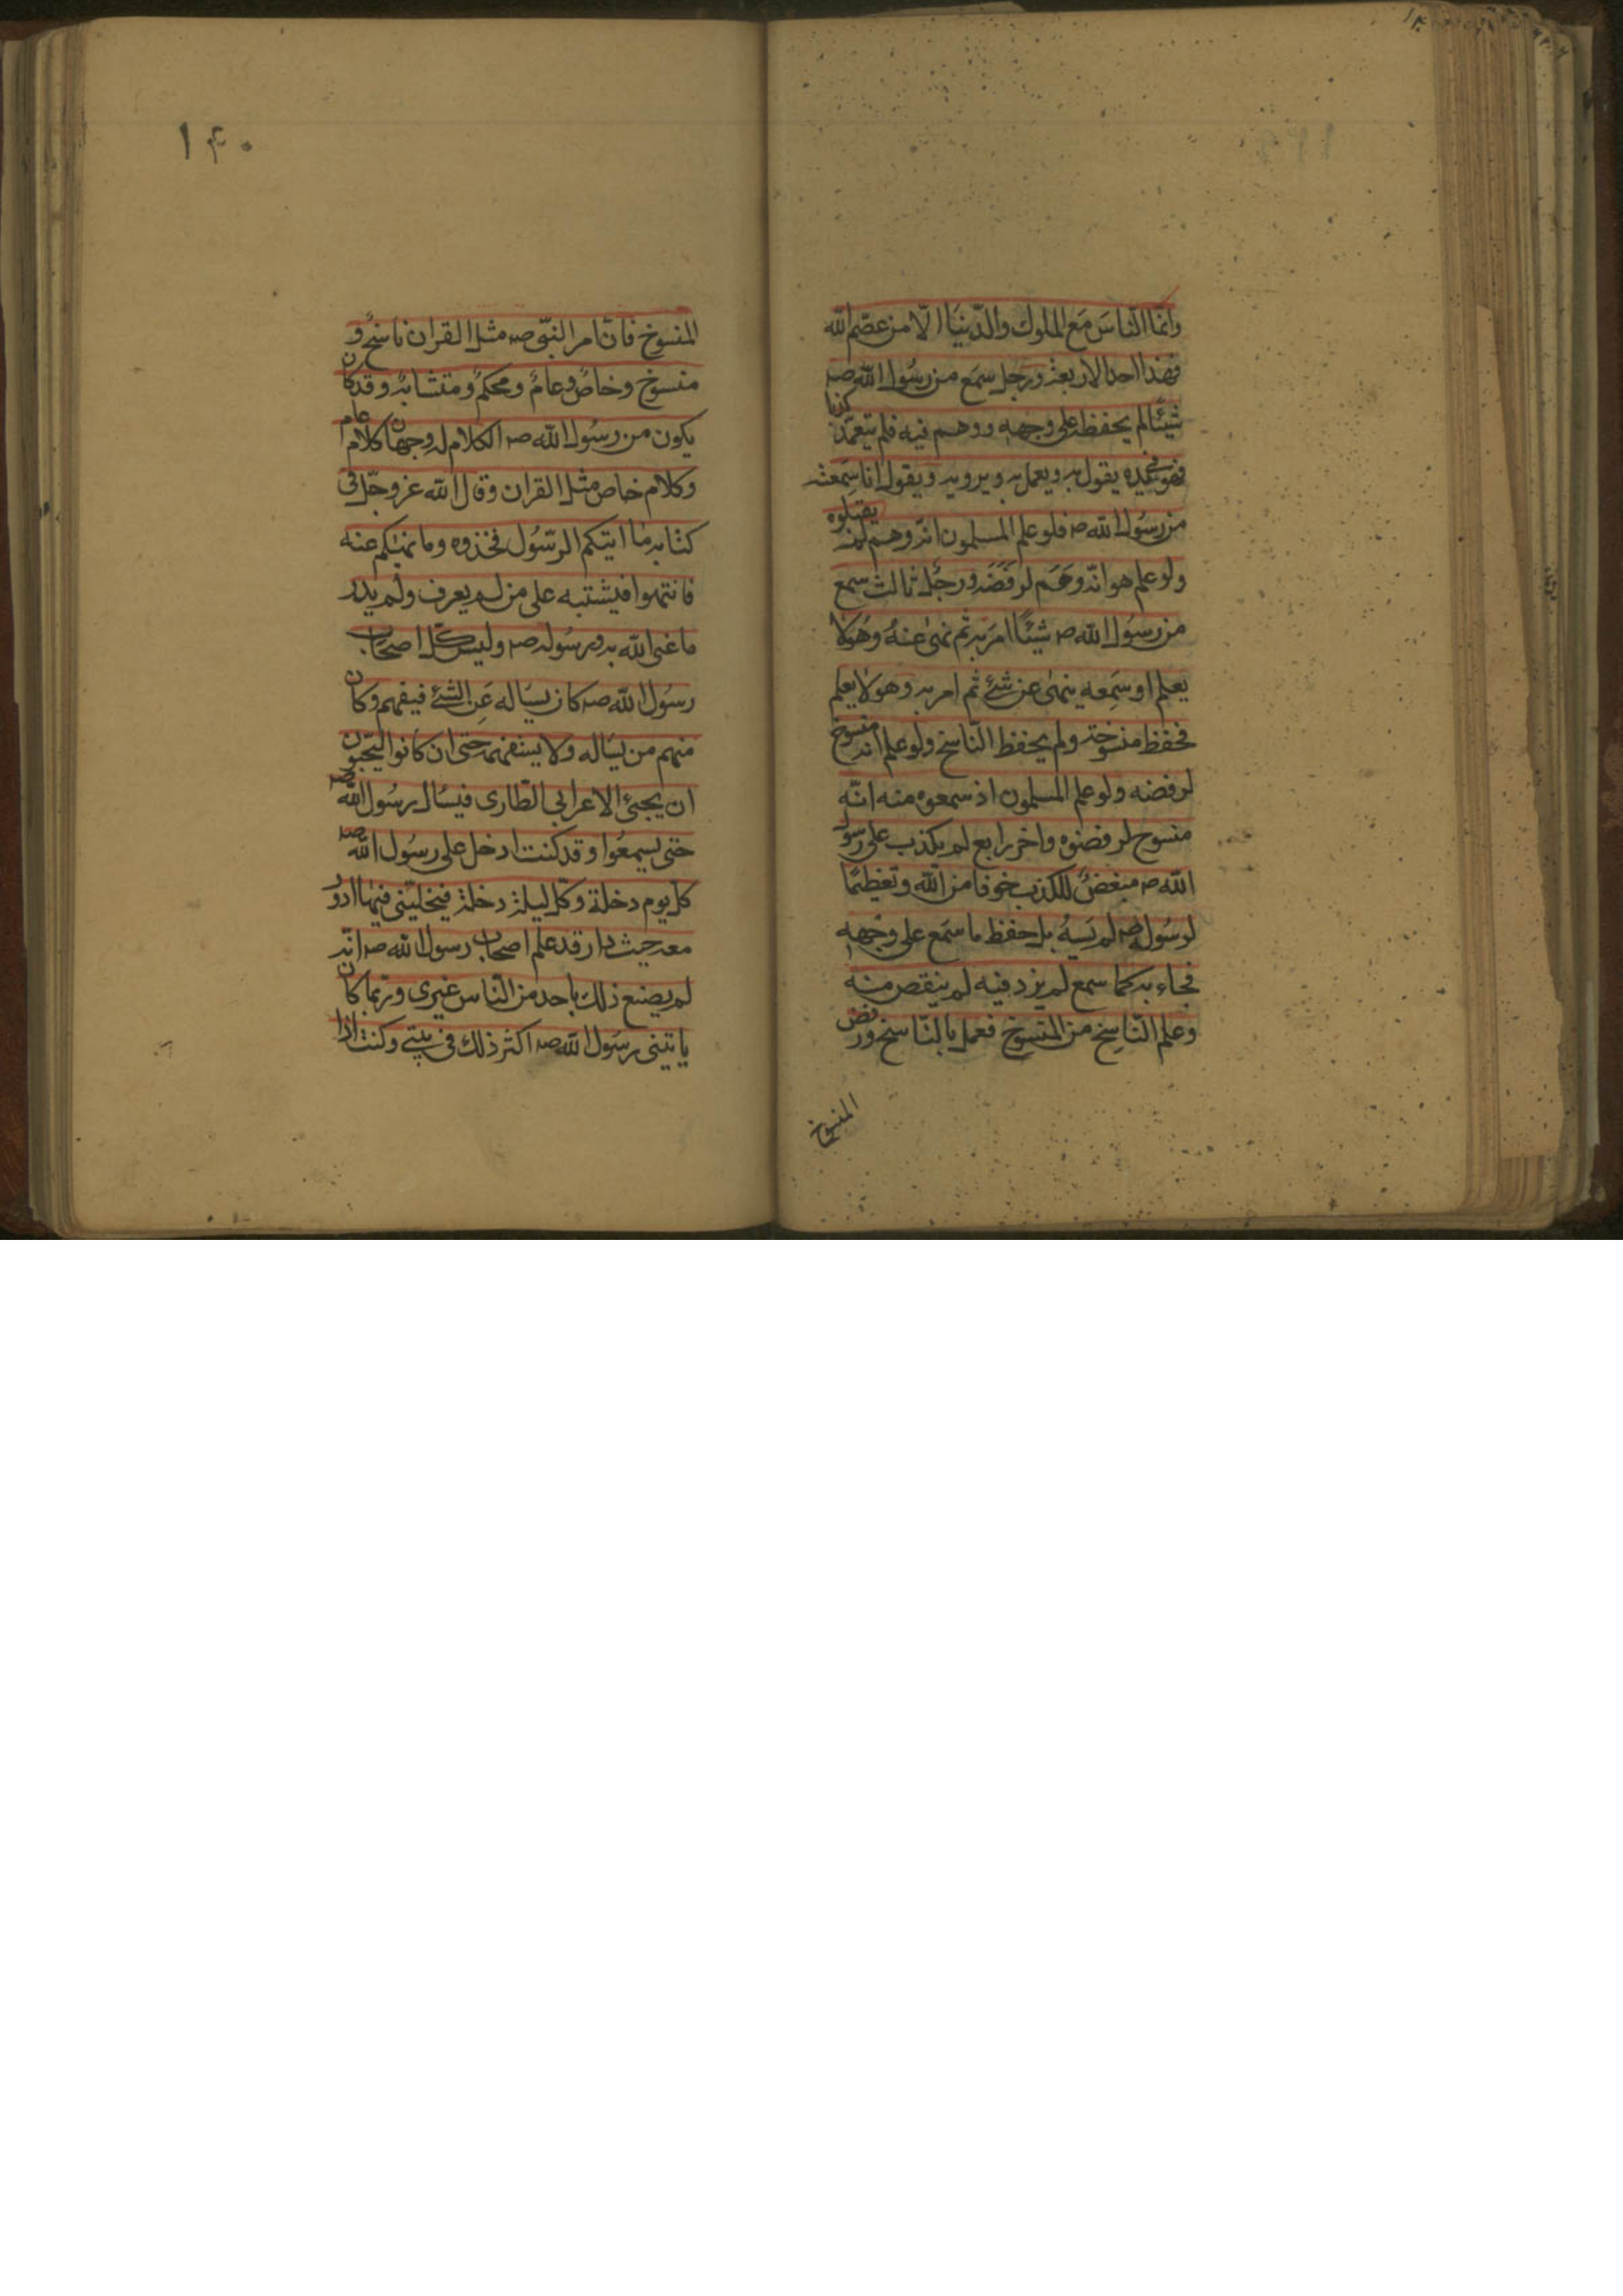 وانّما النّاسَ مَع الملوك والدّنيَا الّا من عصَم الله
فهَذا احد الاربعة ورجل سمَع من رسُول الله صه
شيئًا لم يحفظه على وجهه ووهم فيه فلم يتعمّد كذبا
فهو فى يده يقول به ويعمل به ويرويه ويقول انا سَمعتُه
من رسُول الله صه فلو علم المسلمون انّه وهم لم يقبلوه
ولو علم هو انّه وَهَم لرفَضَه ورجُل ثالث سمع
من رسُول الله صه شيئًا امَر به ثم نهى عنهُ وهُو لا
يعلم او سَمِعه ينهىٰ عن شئ ثم امر به وهو لا يعلم
فحفظ منسوخه ولم يحفظ النّاسخ ولو علم انه منسوخ
لرفضه ولو علم المسلمون اذ سمعوه منه انّه
منسوخ لرفضوه واخر رابع لم يكذب على رسو
الله صه مبغضٌ للكذب خوفا من الله وتعظيمًا
لرسُوله صه لم يَنسهُ بل حفظ ما سَمع على وجهه
فجاء به كما سمع لم يزد فيه لم ينقص منه
وعلم النّاسِخ من المنسوخ فعمل بالنّاسخ ورفض
المنسوخ
١۴٠
المنسوخ فانّ امر النبّى صه مثل القران ناسخٌ و
منسوخ وخاصٌ وعامٌ ومحكمٌ ومتشابهٌ وقد كان
يكون من رسُول الله صه الكلام له وجهان كلام عام
وكلام خاص مثل القران وقال الله عز وجّل فى
كتابه ما اتيكم الرّسُول فخذوه وما نهيٰكم عنه
فانتهوا فيشتبه على من لم يعرف ولم يدر
ما عنى الله به ورسُوله صه وليسَ كلّ اصحَاب
رسُول الله صه كان يسَاله عَن الشئ فيفهم وكان
منهم من يسَاله ولا يستفهمه حتى ان كانوا ليحّبون
ان يجئ الاعرابى الطّارى فيسَال رسُول الله صه
حتى يسمعُوا وقد كنت ادخل على رسُول الله صه
كلّ يوم دخلة وكلّ ليلة دخلة فيخليّنى فيهٰا ادور
معه حيث دار قد علم اصحاب رسول الله صه انّه
لم يصنع ذلك باحد من النّاس غيرى وربّما كان
ياتينى رسُول الله صه اكثر ذلك فى بيتى وكنت اذا